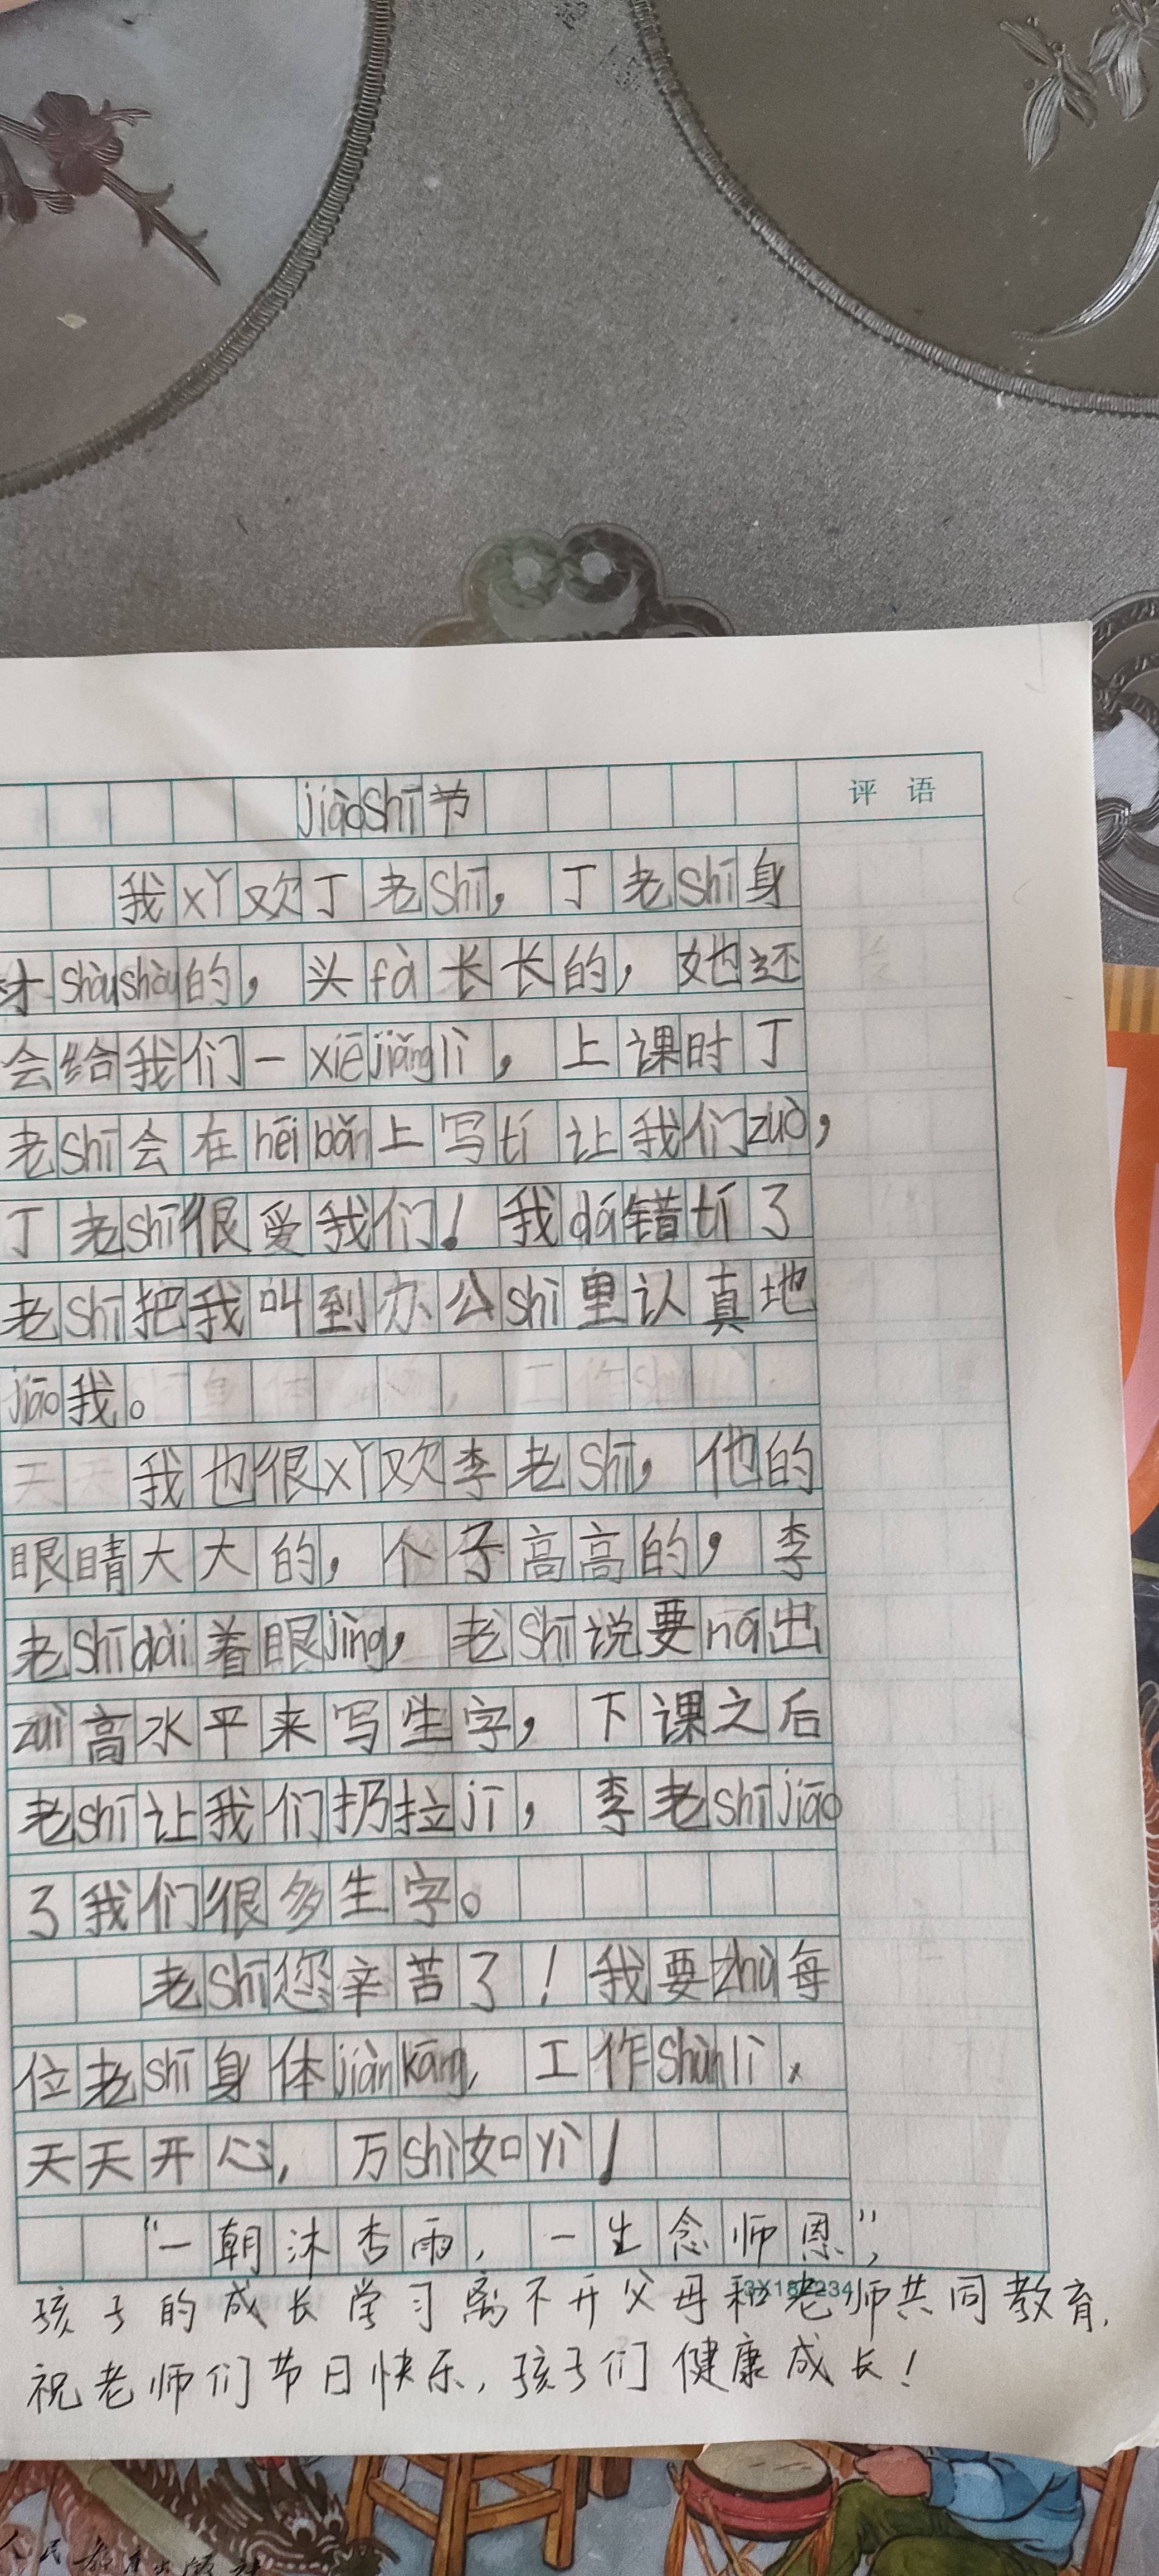 jiàoshī节
评语
我xǐ欢丁老shī，丁老shī身
才shòushòu的，头fà长长的，她还
会给我们一xiējiǎnglì，上课时丁
老shī会在hēibǎn上写tí让我们zuò，
丁老shī很爱我们！我dá错tí了
老shī把我叫到办公shì里认真地
jiāo我。
我也很xǐ欢李老shī，他的
眼睛大大的，个子高高的，李
老shīdài着眼jìng，老shī说要ná出
zuì高水平来写生字，下课之后
老shī让我们扔拉jī，李老shījiāo
了我们很多生字。
老shī您辛苦了！我要zhù每
位老shī身体jiànkāng，工作shùnlì、
天天开心，万shì如yì！
“一朝沐杏雨，一生念师恩”，
孩子的成长学习离不开父母和老师共同教育，
祝老师们节日快乐，孩子们健康成长！
人民教育出版社